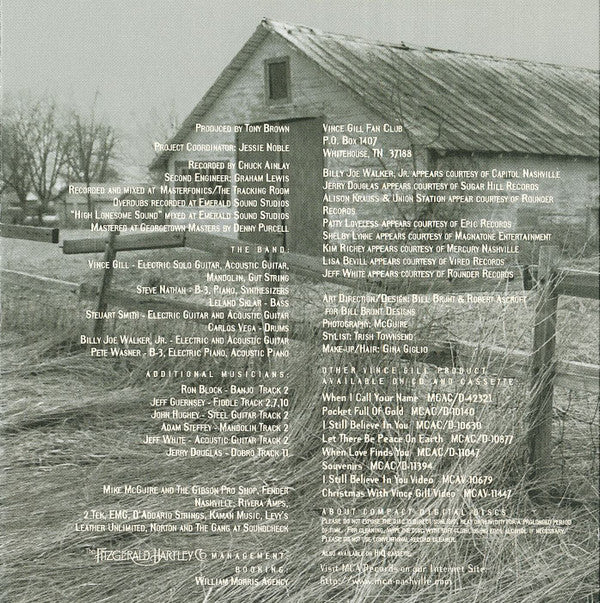 Produced by Tony Brown
Project Coordinator: Jessie Noble
Recorded by Chuck Ainlay
Second Engineer: Graham Lewis
Recorded and mixed at Masterfonics/The Tracking Room
Overdubs recorded at Emerald Sound Studios
"High Lonesome Sound" mixed at Emerald Sound Studios
Mastered at Georgetown Masters by Denny Purcell
THE BAND
Vince Gill - Electric Solo Guitar, Acoustic Guitar,
Mandolin, Gut String
Steve Nathan - B-3, Piano, Synthesizers
Leland Sklar - Bass
Steuart Smith - Electric Guitar and Acoustic Guitar
Carlos Vega - Drums
Billy Joe Walker, Jr. - Electric and Acoustic Guitar
Pete Wasner - B-3, Electric Piano, Acoustic Piano
ADDITIONAL MUSICIANS:
Ron Block - Banjo Track 2
Jeff Guernsey - Fiddle Track 2,7,10
John Hughey - Steel Guitar Track 2
Adam Steffey - Mandolin Track 2
Jeff White - Acoustic Guitar Track 2
Jerry Douglas - Dobro Track 11
Mike McGuire and the Gibson Pro Shop, Fender
Nashville, Rivera Amps,
2 Tek, EMG, D'Addario Strings, Kaman Music, Levy's
Leather Unlimited, Norton and The Gang at Soundcheck
The Fitzgerald Hartley Co MANAGEMENT:
BOOKING:
William Morris Agency
Vince Gill Fan Club
P.O. Box 1407
Whitehouse, TN 37188
Billy Joe Walker, Jr. appears courtesy of Capitol Nashville
Jerry Douglas appears courtesy of Sugar Hill Records
Alison Krauss & Union Station appear courtesy of Rounder
Records
Patty Loveless appears courtesy of Epic Records
Shelby Lynne appears courtesy of Magnatone Entertainment
Kim Richey appears courtesy of Mercury Nashville
Lisa Bevill appears courtesy of Vireo Records
Jeff White appears courtesy of Rounder Records
Art Direction/Design: Bill Brunt & Robert Ascroft
for Bill Brunt Designs
Photography: McGuire
Stylist: Trish Townsend
Make-up/Hair: Gina Giglio
OTHER VINCE GILL PRODUCT
AVAILABLE ON CD AND CASSETTE
When I Call Your Name MCAC/D-42321
Pocket Full Of Gold MCAC/D-10140
I Still Believe In You MCAC/D-10630
Let There Be Peace On Earth MCAC/D-10877
When Love Finds You MCAC/D-11047
Souvenirs MCAC/D-11394
I Still Believe In You Video MCAV-10679
Christmas With Vince Gill Video MCAV-11447
ABOUT COMPACT DIGITAL DISCS
Please do not expose the disc to direct sunlight, heat or humidity for a prolonged period
of time. For cleaning, wipe the disc with soft cloth, using 100% alcohol if necessary.
Please do not use conventional record cleaner.
Also available on HiQ cassette.
Visit MCA Records on our Internet Site:
http://www.mca-nashville.com